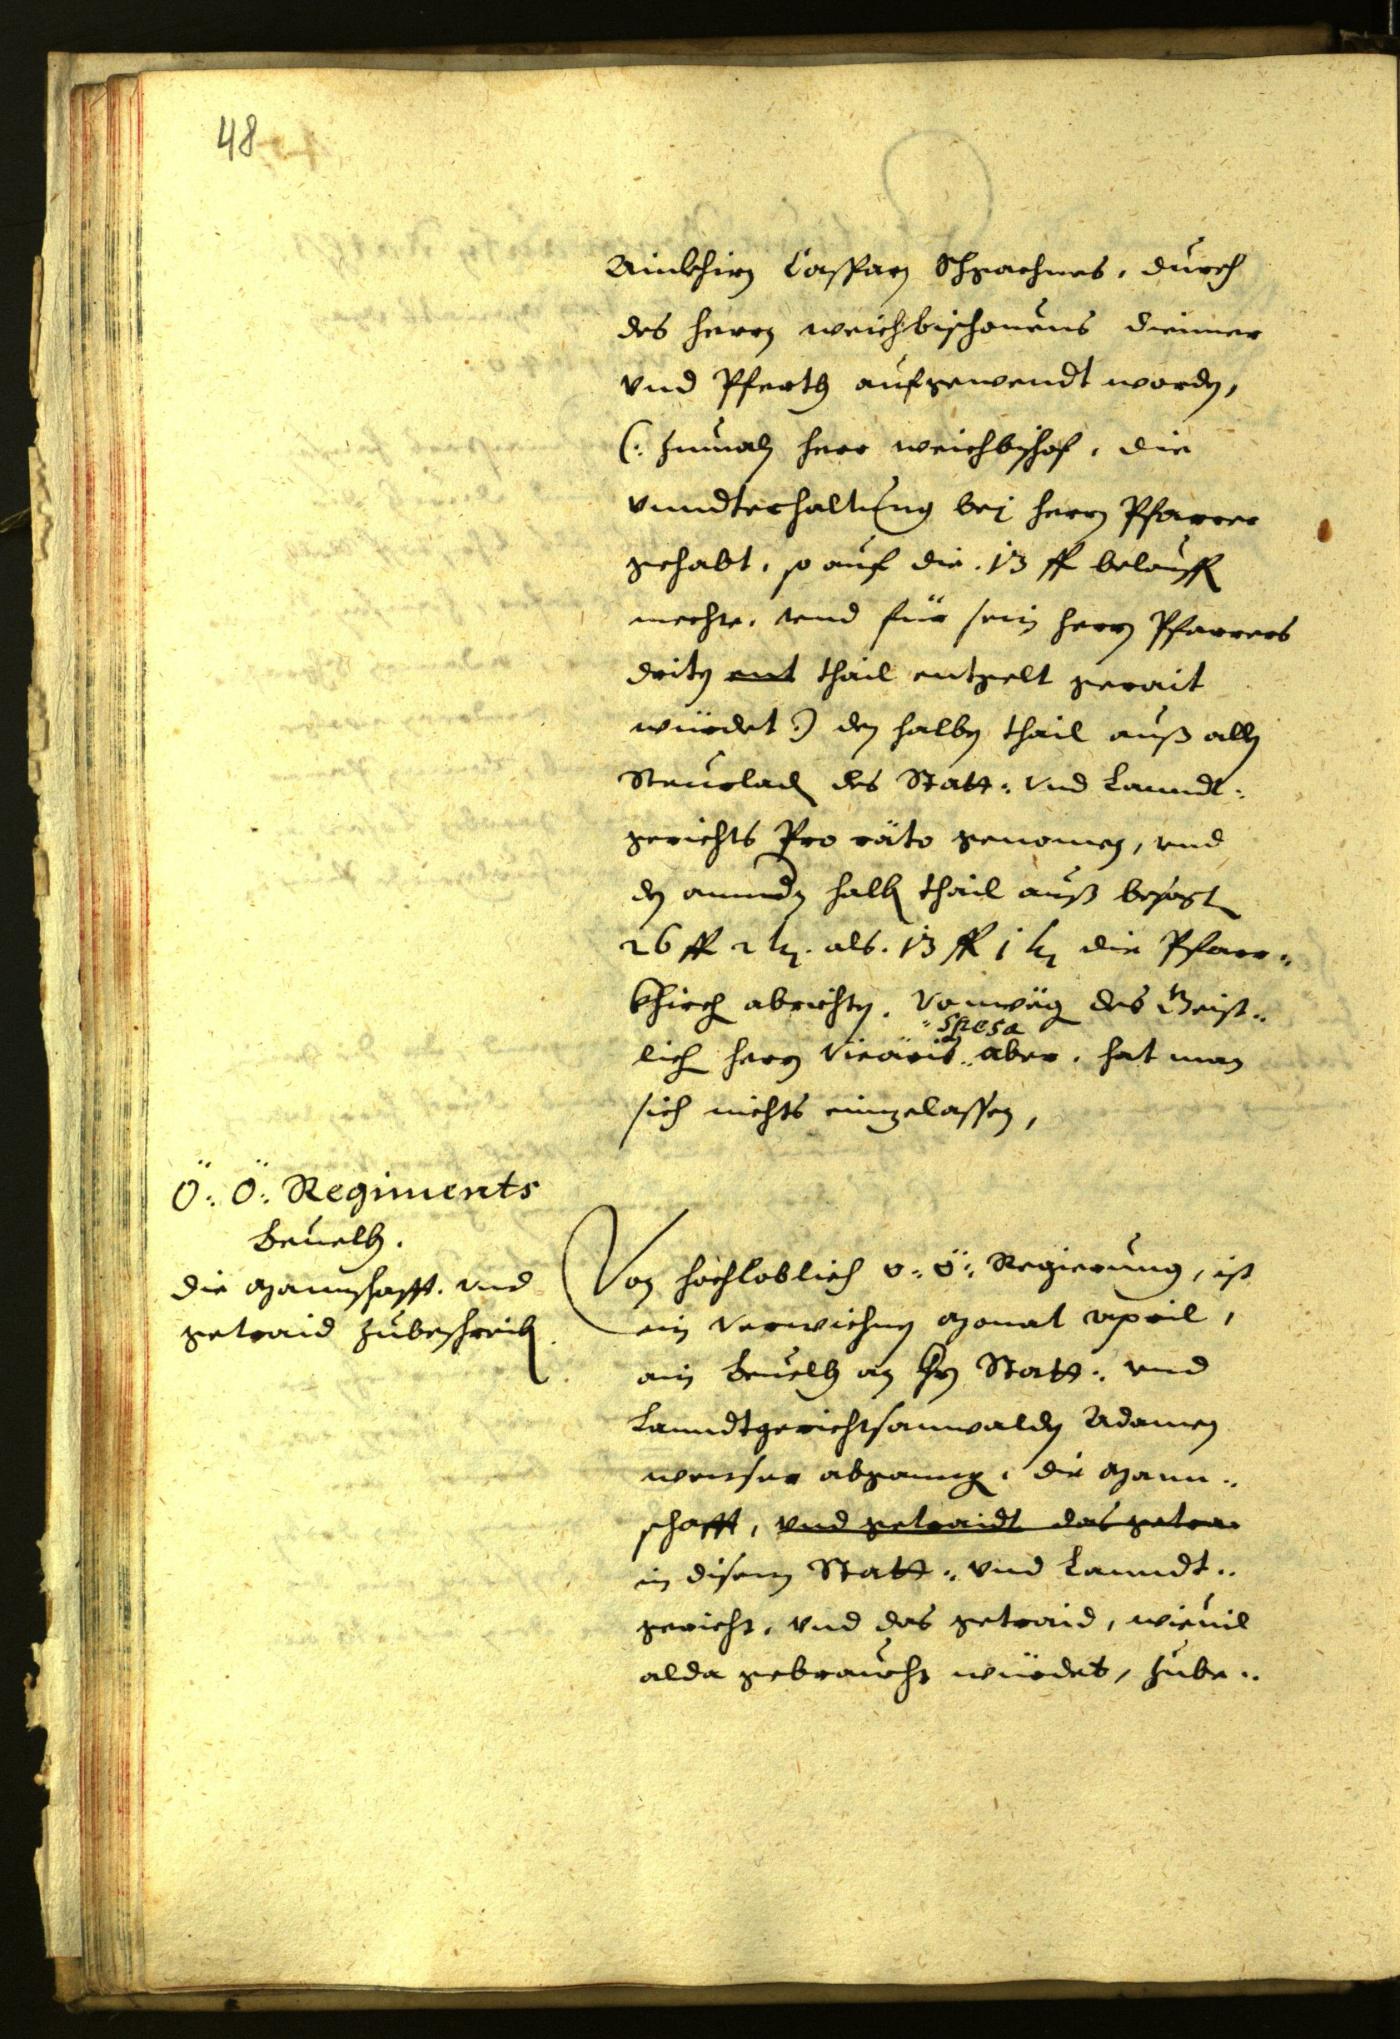 48
Ainkhirn Casparn Schgrachners, durch
des herrn weichbischouens diennner
vnd Pferth aufgewendt worden,
(: zumaln herr weichbischof, die
vnndterhaltung bej herrn Pfarrer
gehabt, so auf die 13 fl belauffen
mechte, vnd für sein herrn Pfarrers
driten ent thail entgelt gerait
würdet :) den halben thail auß allen
Steurladen des Statt: vnd Lanndt:
gerichts Pro räto genomen, vnd
den anndern halben thail auß besagten
26 fl 2 kr. als 13 fl 1 kr die Pfarr:
khirch abrichten. Vonwegen des Geist:
spesa
lichen herrn Vicäris aber, hat man
sich nichts eingelassen,
Ö: Ö: Regiments
Beuelh.
die Mannschafft, vnd
getraid zubeschreiben
Von hochloblich o: ö: Regierung, ist
ein verwichnen Monat April,
ain Beuelh an hrn Statt: vnd
Lanndtgerichtsanwalden Adamen
wenser abgangen, die Mann:
schafft, vnd getraidt das getra
in disem Statt: vnd Lanndt:
gericht, vnd das getraid, wieuil
alda gebraucht würdet, zube: